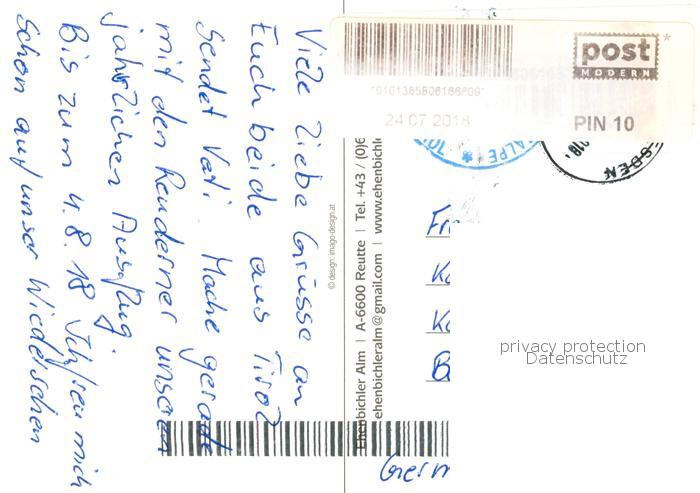 Viele liebe Grüsse an
Euch beide aus Tirol
Sendet Vati. Mache gerade
mit den Reuderner unseren
jährlichen Ausflug.
Bis zum 4.8.18 Ich freu mich
schon auf unser Wiedersehen
© design: imago-design.at
Ehenbichler Alm | A-6600 Reutte | Tel. +43 / (0)6
ehenbichleralm@gmail.com | www.ehenbichle
post
MODERN
*
24 07 2018
PIN 10
ALPE
SDEN
privacy protection
Datenschutz